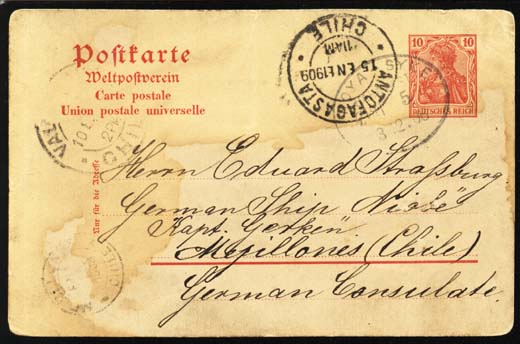 Postkarte
Weltpostverein
Carte postale
Union postale universelle
10 10
DEUTSCHES REICH
ANTOFAGASTA
CHILE
15 EN 1909
11AM
SYKE
VAL
10 E
2
CHI
Nur für die Adresse
Herrn Eduard Straßburg.
German Ship Niobe
Kapt. Gerken
Mejillones (Chile)
German Consulate.
CHILE